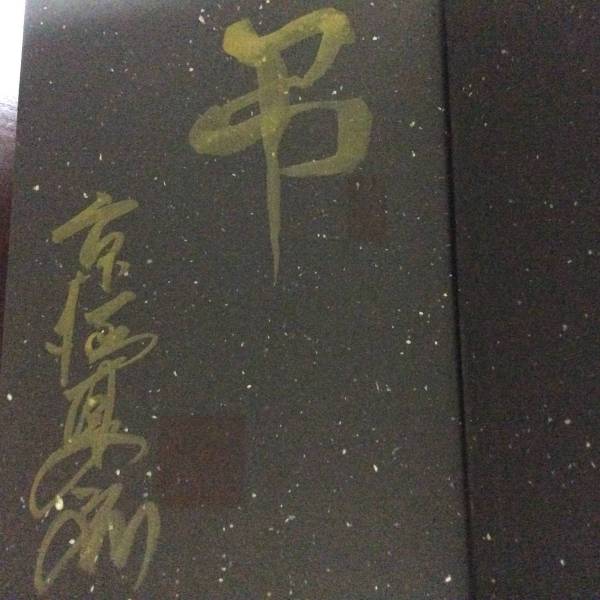 弔
京極夏彦